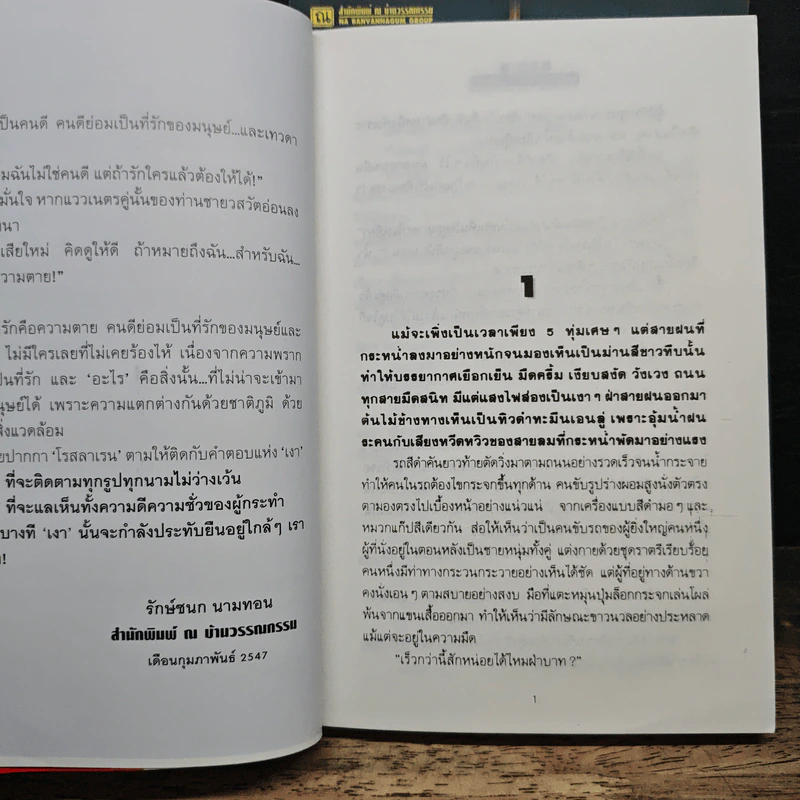 ณ สำนักพิมพ์ ณ บ้านวรรณกรรม
NA BANVANNAGUM GROUP
เป็นคนดี คนดีย่อมเป็นที่รักของมนุษย์...และเทวดา
มฉันไม่ใช่คนดี แต่ถ้ารักใครแล้วต้องให้ได้!"
มั่นใจ หากแววเนตรคู่นั้นของท่านชายวสวัตอ่อนลง
นา
เสียใหม่ คิดดูให้ดี ถ้าหมายถึงฉัน...สำหรับฉัน...
ความตาย!"
รักคือความตาย คนดีย่อมเป็นที่รักของมนุษย์และ
ไม่มีใครเลยที่ไม่เคยร้องไห้ เนื่องจากความพราก
เป็นที่รัก และ 'อะไร' คือสิ่งนั้น...ที่ไม่น่าจะเข้ามา
นุษย์ได้ เพราะความแตกต่างกันด้วยชาติภูมิ ด้วย
สิ่งแวดล้อม
ยปากกา 'โรสลาเรน' ตามให้ติดกับคำตอบแห่ง 'เงา'
ที่จะติดตามทุกรูปทุกนามไม่ว่างเว้น
ที่จะแลเห็นทั้งความดีความชั่วของผู้กระทำ
บางที 'เงา' นั้นจะกำลังประทับยืนอยู่ใกล้ๆ เรา
!
รักษ์ชนก นามทอน
สำนักพิมพ์ ณ บ้านวรรณกรรม
เดือนกุมภาพันธ์ 2547
1
แม้จะเพิ่งเป็นเวลาเพียง 5 ทุ่มเศษๆ แต่สายฝนที่
กระหน่ำลงมาอย่างหนักจนมองเห็นเป็นม่านสีขาวทึบนั้น
ทำให้บรรยากาศเยือกเย็น มืดครึ้ม เงียบสงัด วังเวง ถนน
ทุกสายมืดสนิท มีแต่แสงไฟส่องเป็นเงาๆ ฝ่าสายฝนออกมา
ต้นไม้ข้างทางเห็นเป็นทิวดำทะมึนเอนลู่ เพราะอุ้มน้ำฝน
ระคนกับเสียงหวีดหวิวของสายลมที่กระหน่ำพัดมาอย่างแรง
รถสีดำคันยาวท้ายตัดวิ่งมาตามถนนอย่างรวดเร็วจนน้ำกระจาย
ทำให้คนในรถต้องไขกระจกขึ้นทุกด้าน คนขับรูปร่างผอมสูงนั่งตัวตรง
ตามองตรงไปเบื้องหน้าอย่างแน่วแน่ จากเครื่องแบบสีดำมอๆ และ
หมวกแก๊ปสีเดียวกัน ส่อให้เห็นว่าเป็นคนขับรถของผู้ยิ่งใหญ่คนหนึ่ง
ผู้ที่นั่งอยู่ในตอนหลังเป็นชายหนุ่มทั้งคู่ แต่งกายด้วยชุดราตรีเรียบร้อย
คนหนึ่งมีท่าทางกระวนกระวายอย่างเห็นได้ชัด แต่ผู้ที่อยู่ทางด้านขวา
คงนั่งเอนๆ ตามสบายอย่างสงบ มือที่แตะหมุนปุ่มล็อกกระจกเล่นโผล่
พ้นจากแขนเสื้อออกมา ทำให้เห็นว่ามีลักษณะขาวนวลอย่างประหลาด
แม้แต่จะอยู่ในความมืด
"เร็วกว่านี้สักหน่อยได้ไหมฝ่าบาท?"
1